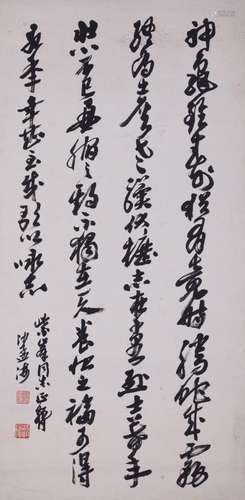 神龜雖壽猶有竟時騰蛇乘霧
終為土灰老驥伏櫪志在千里烈士暮年
壯心不已盈縮之期不獨在天養怡之福可得
永年幸甚至哉歌以詠志
同志正
沙孟海